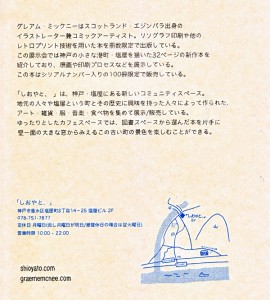 グレアム・ミックニーはスコットランド・エジンバラ出身の
イラストレーター兼コミックアーティスト。リソグラフ印刷や他の
レトロプリント技術を用いた本を册数限定で出版している。
この展示会では神戸の小さな港町・塩屋を描いた32ページの新作本を
紹介しており、原画や印刷プロセスなどを展示している。
この本はシリアルナンバー入りの100冊限定で販売している。
「しおやと、」は、神戸・塩屋にある新しいコミュニティスペース。
地元の人々や塩屋という町とその歴史に興味を持った人々によって作られた、
アート・雑貨・服・音楽・食べ物を集めて展示/販売している。
ゆったりとしたカフェスペースでは、図書スペースから選んだ本を片手に
壁一面の大きな窓からみえるこの古い町の景色を楽しむことができる。
「しおやと、」
神戸市垂水区塩屋町3丁目14-25 塩屋ビル 2F
078-751-7877
定休日 月曜日
営業時間 10:00 - 22:00
shioyato.com
graememcnee.com